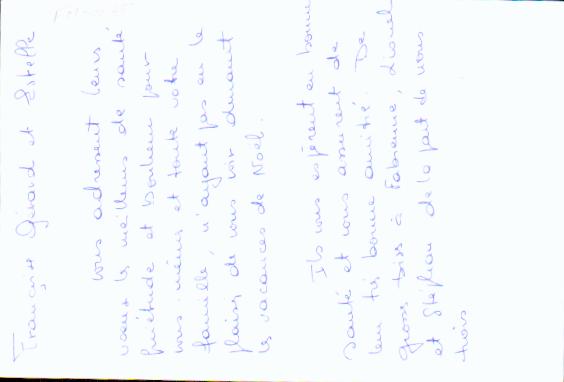 Françoise Gérard et Estelle
vous adressent leurs
vœux les meilleurs de santé
quiétude et bonheur pour
vous-même et toute votre
famille, n'ayant pas eu le
plaisir de vous voir durant
les vacances de Noël.
Ils vous espèrent en bonne
santé et vous assurent de
leur très bonne amitié. De
gross biss à Fabienne, Lionel
et Stéphan de la part de vous
trois